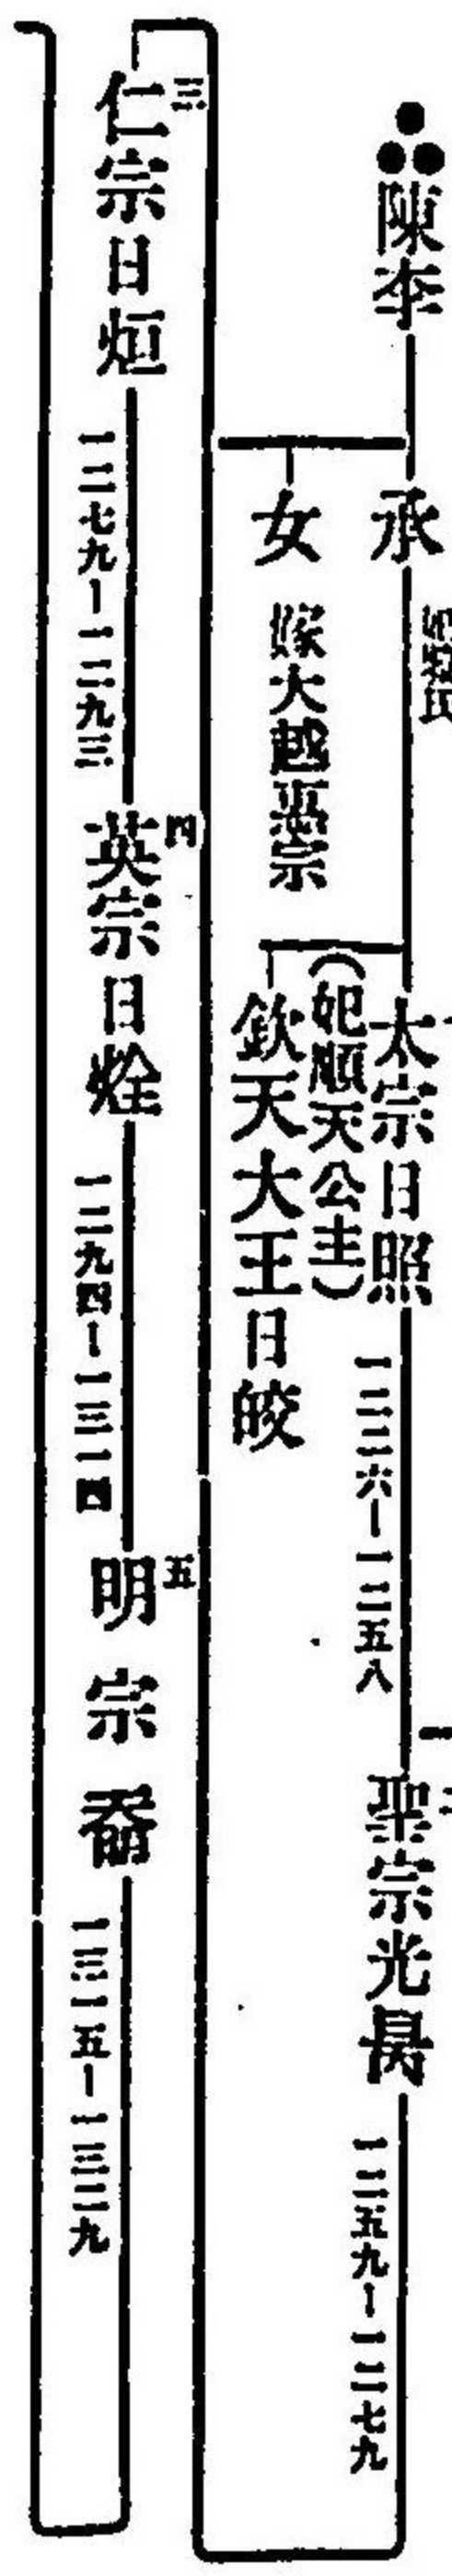 陳李
承
女 嫁大越惠宗
太宗日照 一二二六-一二五八
(妃順天公主)
欽天大王日皎
聖宗光昺 一二五九-一二七九
三
仁宗日烜 一二七九-一二九三
四
英宗日烇 一二九四-一三一四
五
明宗奣 一三一五-一三二九